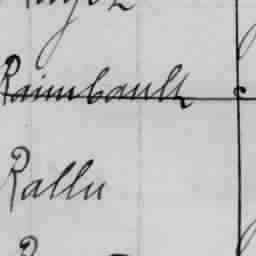 Raimbault
Rallu